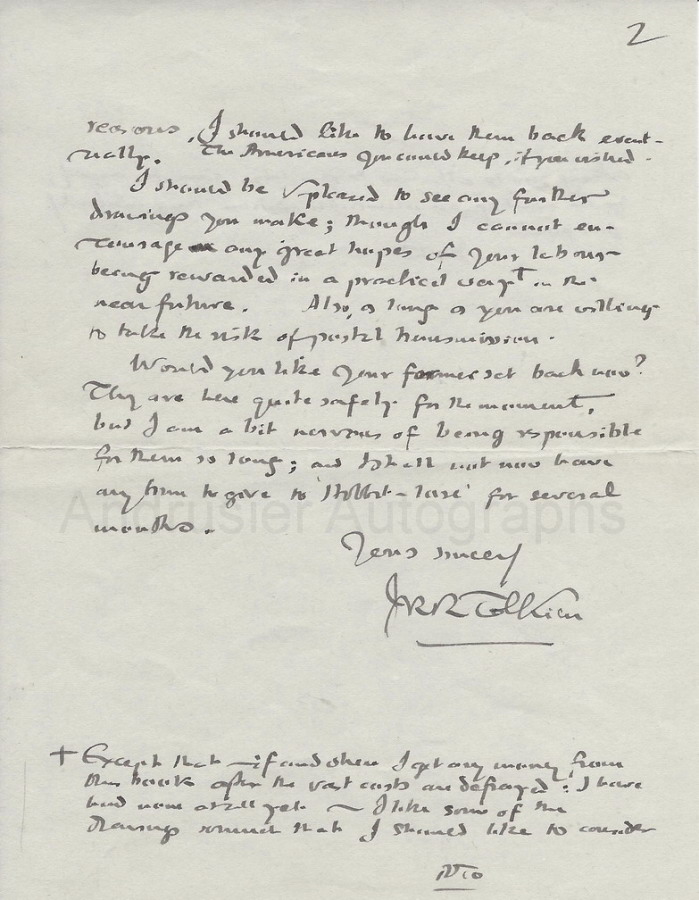 2
reasons, I should like to have them back event-
ually. The Americans you could keep, if you wished.
I should be pleased to see any further
drawings you make; though I cannot en-
courage any great hopes of your labour
being rewarded in a practical way† in the
near future. Also, as long as you are willing
to take the risk of postal transmission.
Would you like your former set back now?
They are here quite safely for the moment,
but I am a bit nervous of being responsible
for them so long; and I shall not now have
any time to give to 'Hobbit-lore' for several
months.
Yours sincerely
JRR Tolkien
† Except that — if and when I get any money from
this book after the vast costs are defrayed: I have
had none at all yet — I like some of the
drawings so much that I should like to consider
PTO
Andrusier Autographs